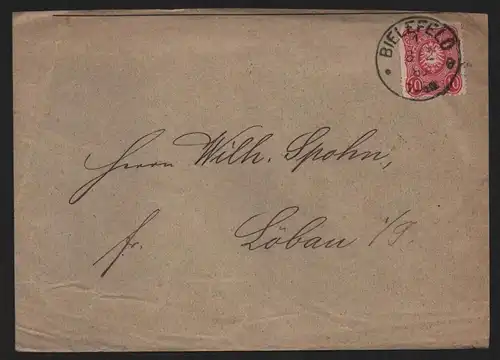 BIELEFELD
10 10
Herrn Wilh. Spohn,
fr. Löbau i/S.